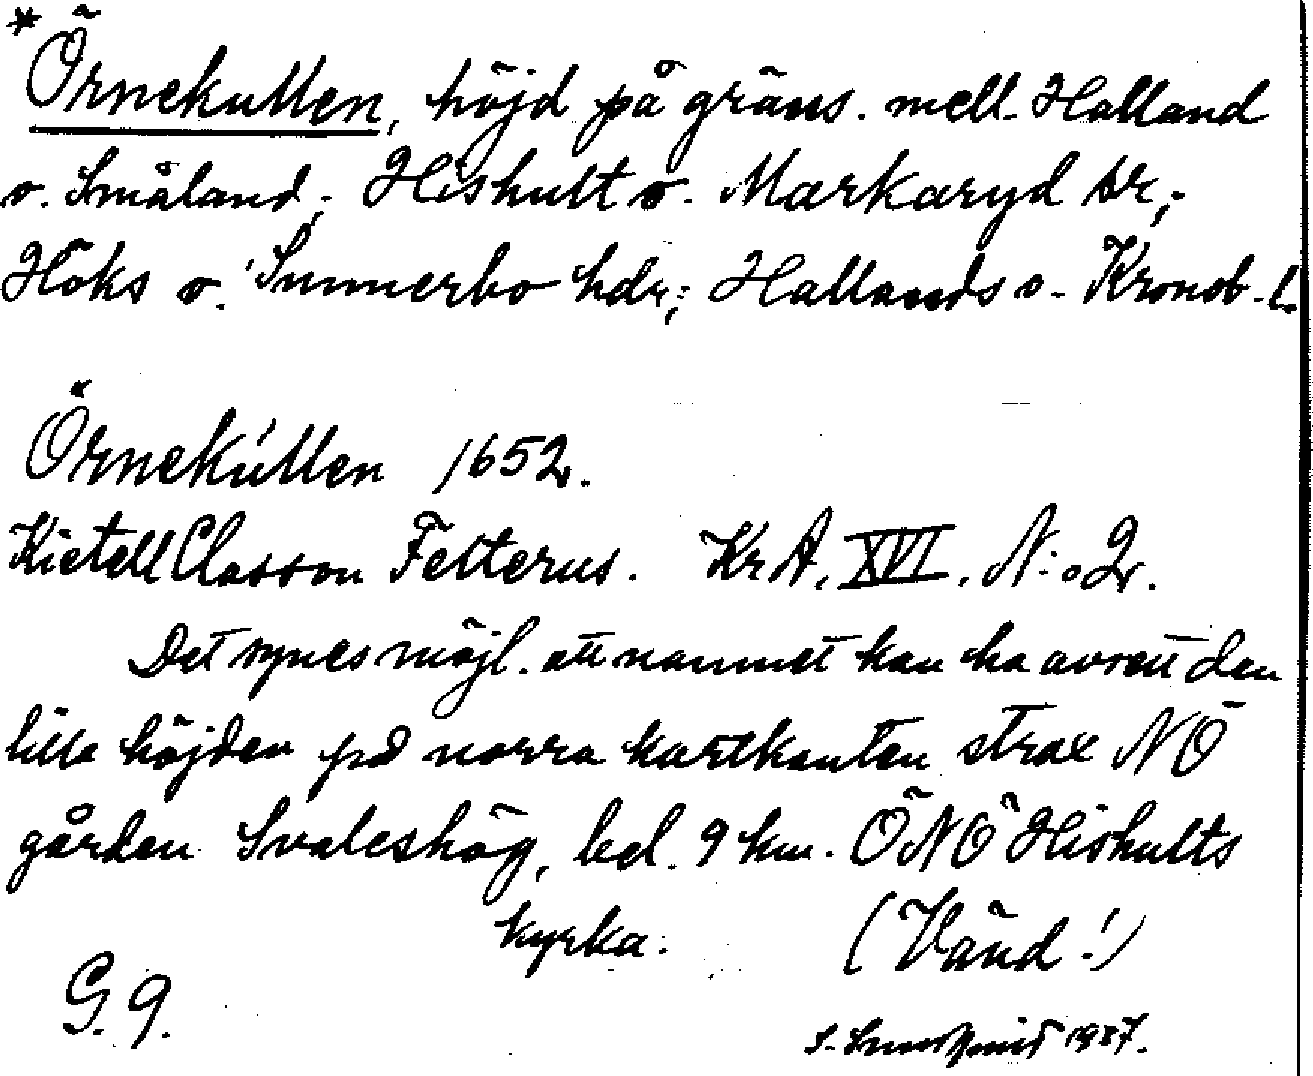 *
Örnekullen, höjd på gräns. mell. Halland
o. Småland; Hishult o. Markaryd sr;
Höks o. Sunnerbo hdr; Hallands o. Kronob. l.
Örnekúllen 1652.
Kietell Classon Felterus. KrA. XVI. N:o 2.
Det synes möjl. att namnet kan ha avsett den
lilla höjden på norra kartkanten strax NÖ
gården Svaleshög, bel. 9 km. ÖNÖ Hishults
kyrka. (Vänd!)
G. 9.
S. 1937.